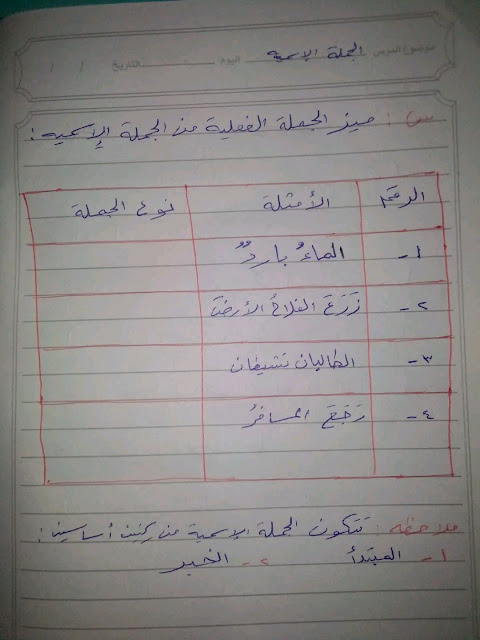 موضوع الدرس الجملة الإسمية اليوم التاريخ / /
س : ميز الجملة الفعلية من الجملة الإسمية :
الرقم الأمثلة نوع الجملة
١- الماءُ باردٌ
٢- زَرَعَ الفلاحُ الأرضَ
٣- الطالبان نشيطان
٤- رَجَعَ المسافرُ
ملاحظه : تتكون الجملة الإسمية من ركنين أساسين :
١- المبتدأ ٢- الخبر